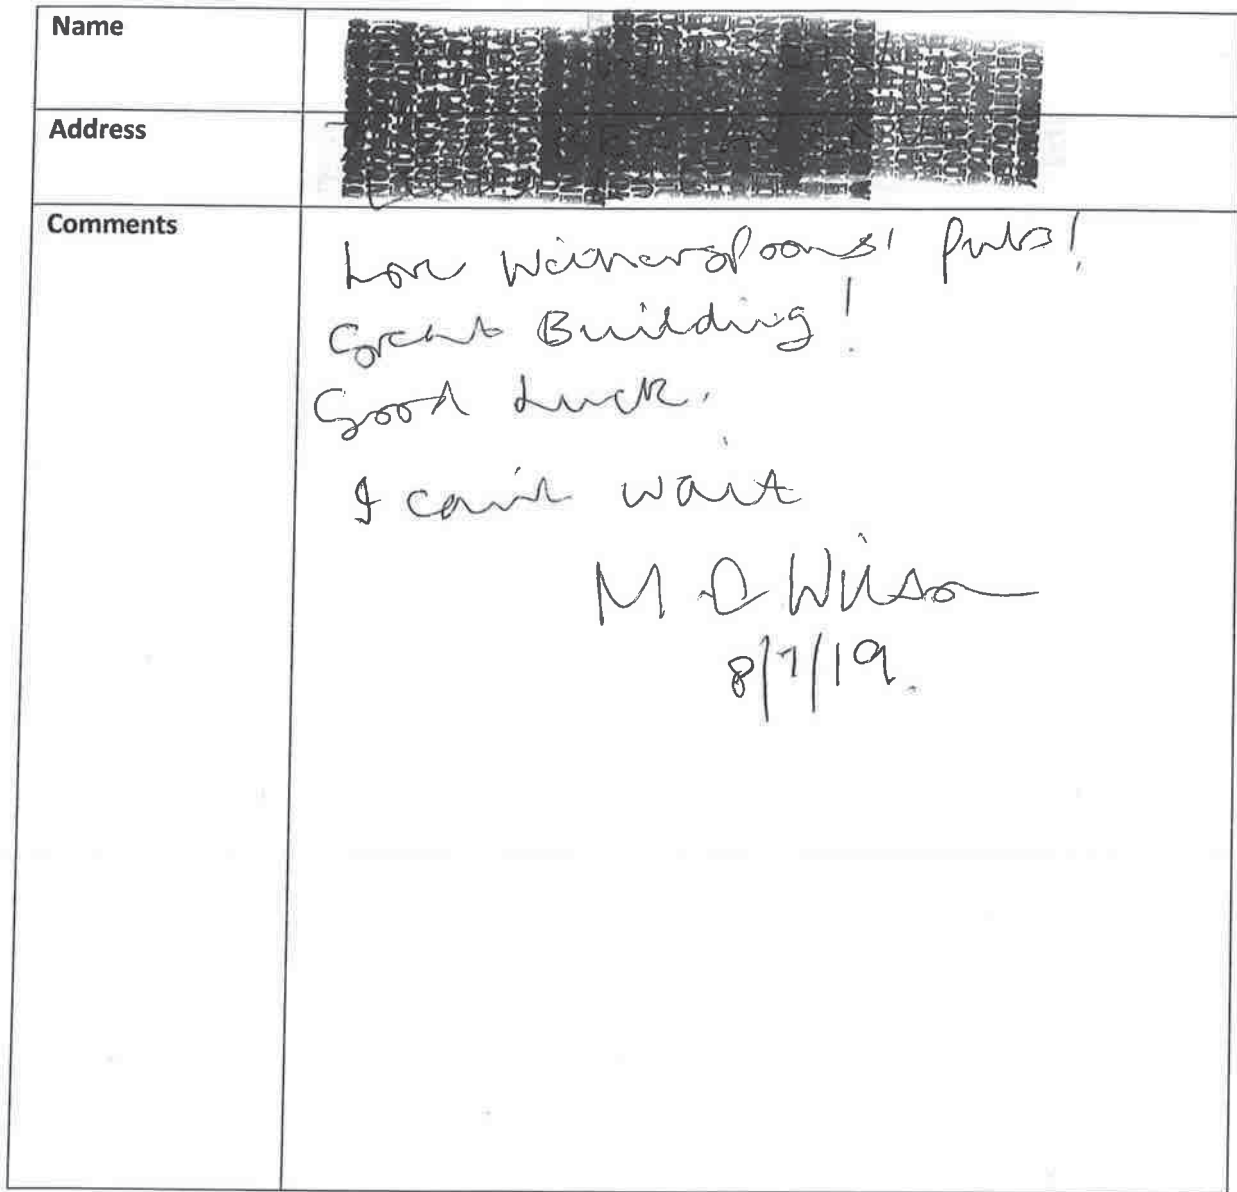 Name
Address
Comments
Love Weatherspoons' Pubs!
Great Building!
Good Luck.
I can't wait
M D Wilson
8/7/19.